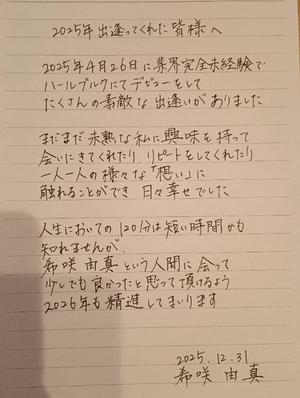 2025年 出逢ってくれた皆様へ
2025年4月26日に業界完全未経験で
ハールブルクにてデビューをして
たくさんの素敵な出逢いがありました
まだまだ未熟な私に興味を持って
会いにきてくれたり、リピートをしてくれたり
一人一人の様々な「想い」に
触れることができ 日々幸せでした
人生においての120分は短い時間かも
知れませんが、
希咲 由真という人間に会って
少しでも良かったと思って頂けるよう
2026年も精進してまいります
2025.12.31
希咲 由真